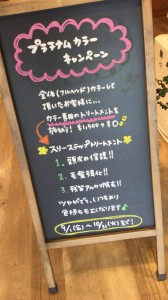 プラチナム カラー
キャンペーン
全体(フルヘッド)カラーして
頂いたお客様に…
カラー専用のトリートメントを
☆スリーステップトリートメント
1. 頭皮の保護!!
2. 毛髪強化!!
3. 残留アルカリ除去!!
ツヤがでて、いつもより
色持ちも
9/1(金)~10/31(火)まで!